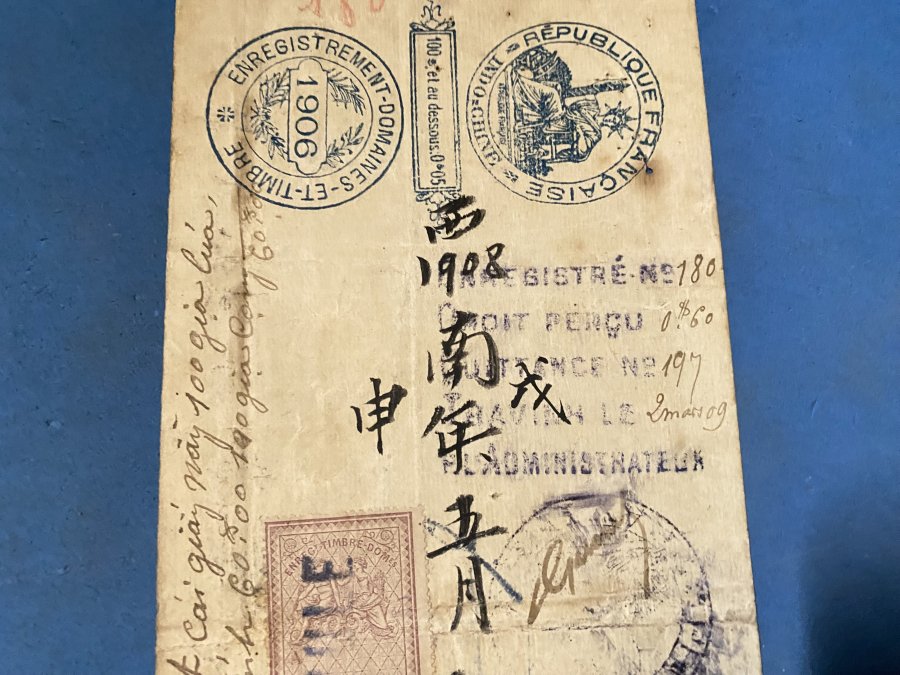 180
ENREGISTREMENT-DOMAINES-ET-TIMBRE
1906
100$ et au dessous. 0$05
RÉPUBLIQUE FRANÇAISE
INDO-CHINE
西
1908
南
戊申
年
五
月
ENREGISTRÉ Nº 180
DROIT PERÇU 0$60
QUITTANCE Nº 197
TRAVINH LE 2 mars 09
L'ADMINISTRATEUR
Cái giấy nầy 100 giạ lúa,
60$00 100 giạ
ENREG. TIMBRE-DOMS